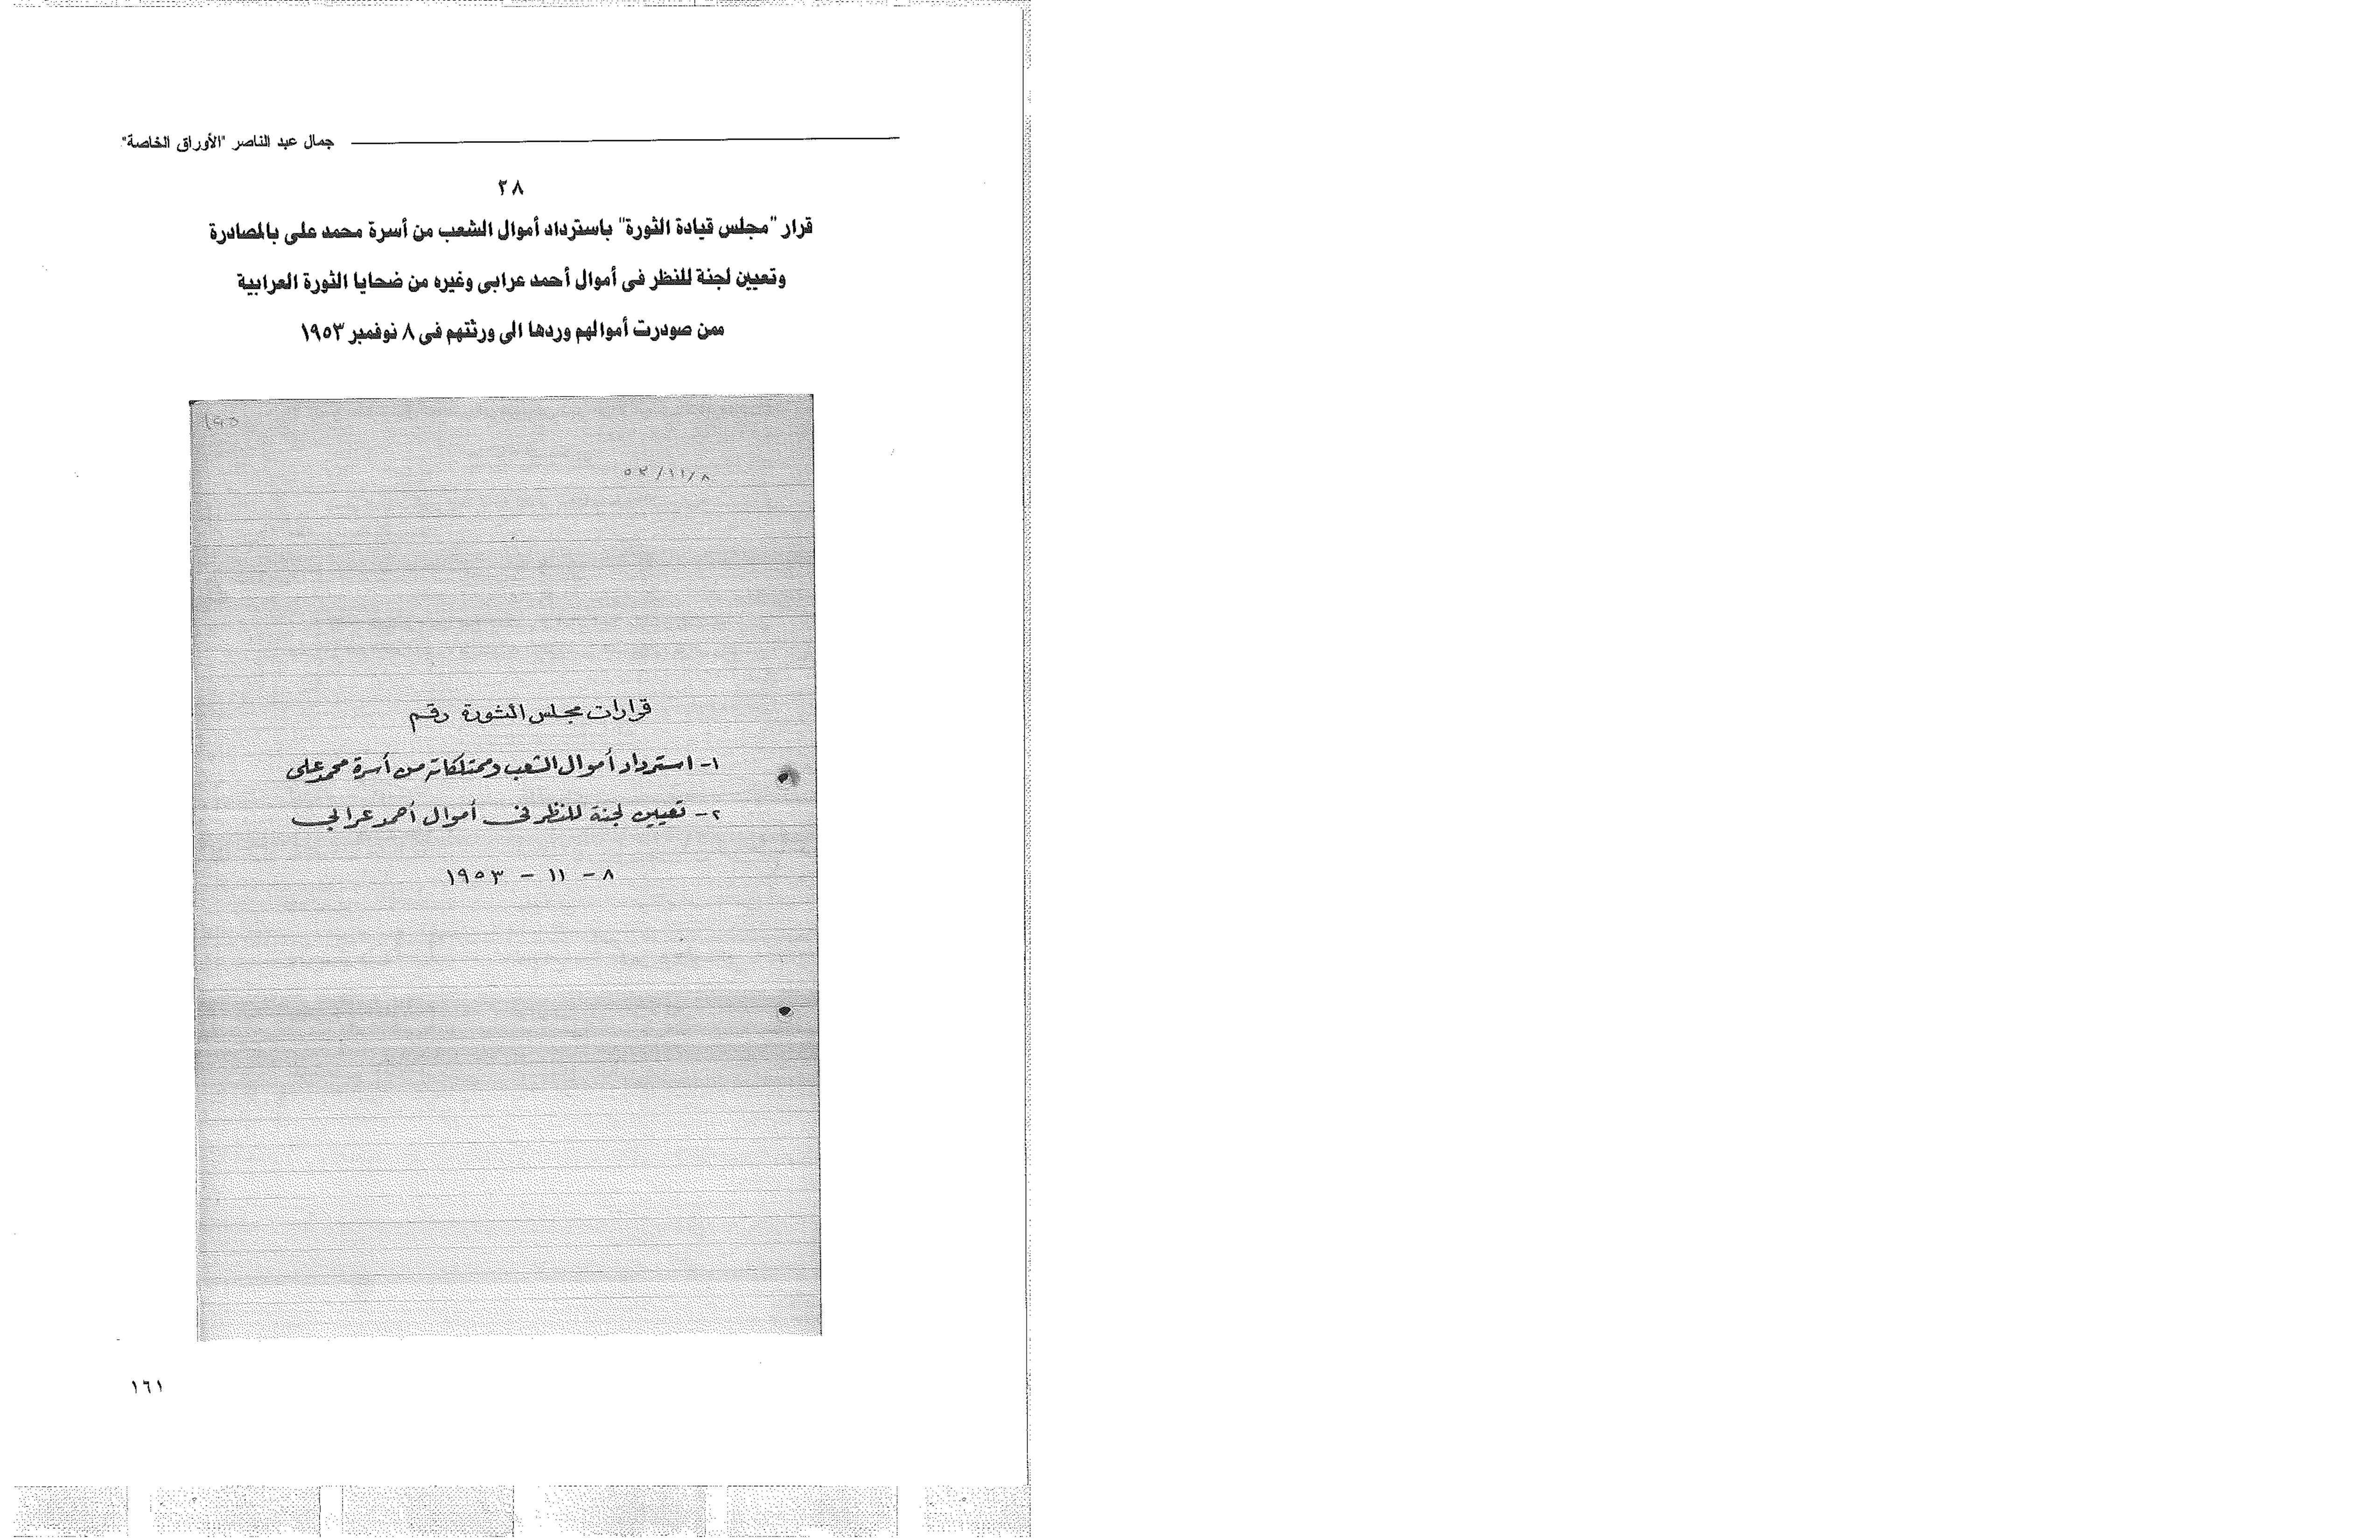 جمال عبد الناصر "الأوراق الخاصة"
٢٨
قرار "مجلس قيادة الثورة" باسترداد أموال الشعب من أسرة محمد على بالمصادرة
وتعيين لجنة للنظر فى أموال أحمد عرابى وغيره من ضحايا الثورة العرابية
ممن صودرت أموالهم وردها الى ورثتهم فى ٨ نوفمبر ١٩٥٣
٥٣/١١/٨
قرارات مجلس الثورة رقم
١- استرداد أموال الشعب وممتلكاته من أسرة محمد على
٢- تعيين لجنة للنظر فى أموال أحمد عرابى
٨ - ١١ - ١٩٥٣
١٦١